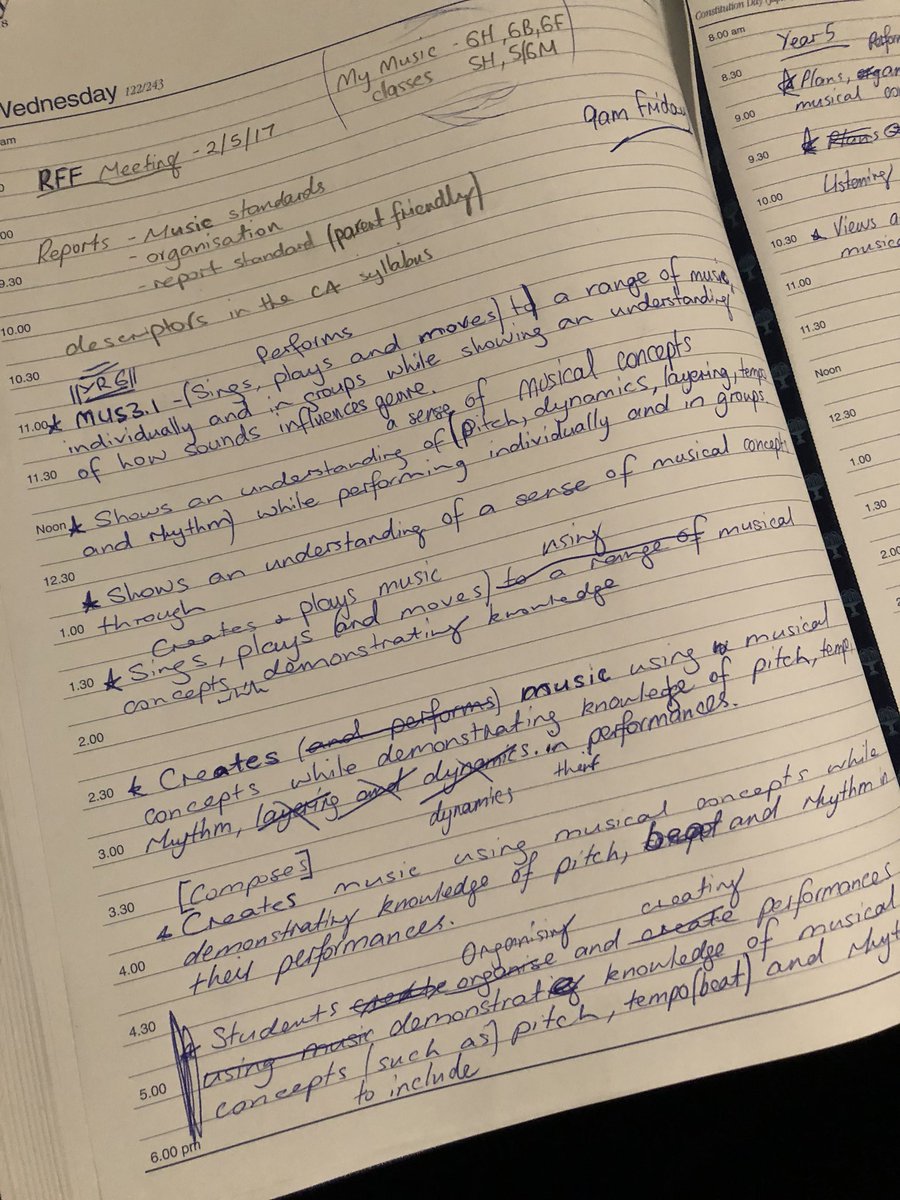 Wednesday 122/243
My Music - 6H, 6B, 6F
classes 5H, 5/6M
9am Friday
RFF Meeting - 2/5/17
Reports - Music standards
- organisation
- report standard (parent friendly)
descriptors in the CA syllabus
YR6
performs
★ MUS3.1 - (Sings, plays and moves) to a range of music,
individually and in groups while showing an understanding
of how sounds influences genre.
a sense of musical concepts
★ Shows an understanding of (pitch, dynamics, layering, tempo
and rhythm) while performing individually and in groups.
★ Shows an understanding of a sense of musical concepts
through
Creates & plays music using
★ Sings, plays and moves) to a range of musical
concepts demonstrating knowledge
with
★ Creates (and performs) music using musical
concepts while demonstrating knowledge of pitch, tempo
rhythm, layering and dynamics. in performances.
dynamics their
[Composes]
★ Creates music using musical concepts while
demonstrating knowledge of pitch, beat and rhythm in
their performances.
Organising creating
★ Students create organise and create performances
using music demonstrating knowledge of musical
concepts (such as) pitch, tempo (beat) and rhyt
to include
am
9.30
10.00
10.30
11.00
11.30
Noon
12.30
1.00
1.30
2.00
2.30
3.00
3.30
4.00
4.30
5.00
6.00 pm
Constitution Day
8.00 am
8.30
9.00
9.30
10.00
10.30
11.00
11.30
Noon
12.30
1.00
1.30
2.00
Year 5 Perform
★ Plans, organ
musical co
★ Plans
Listening
★ Views a
musica